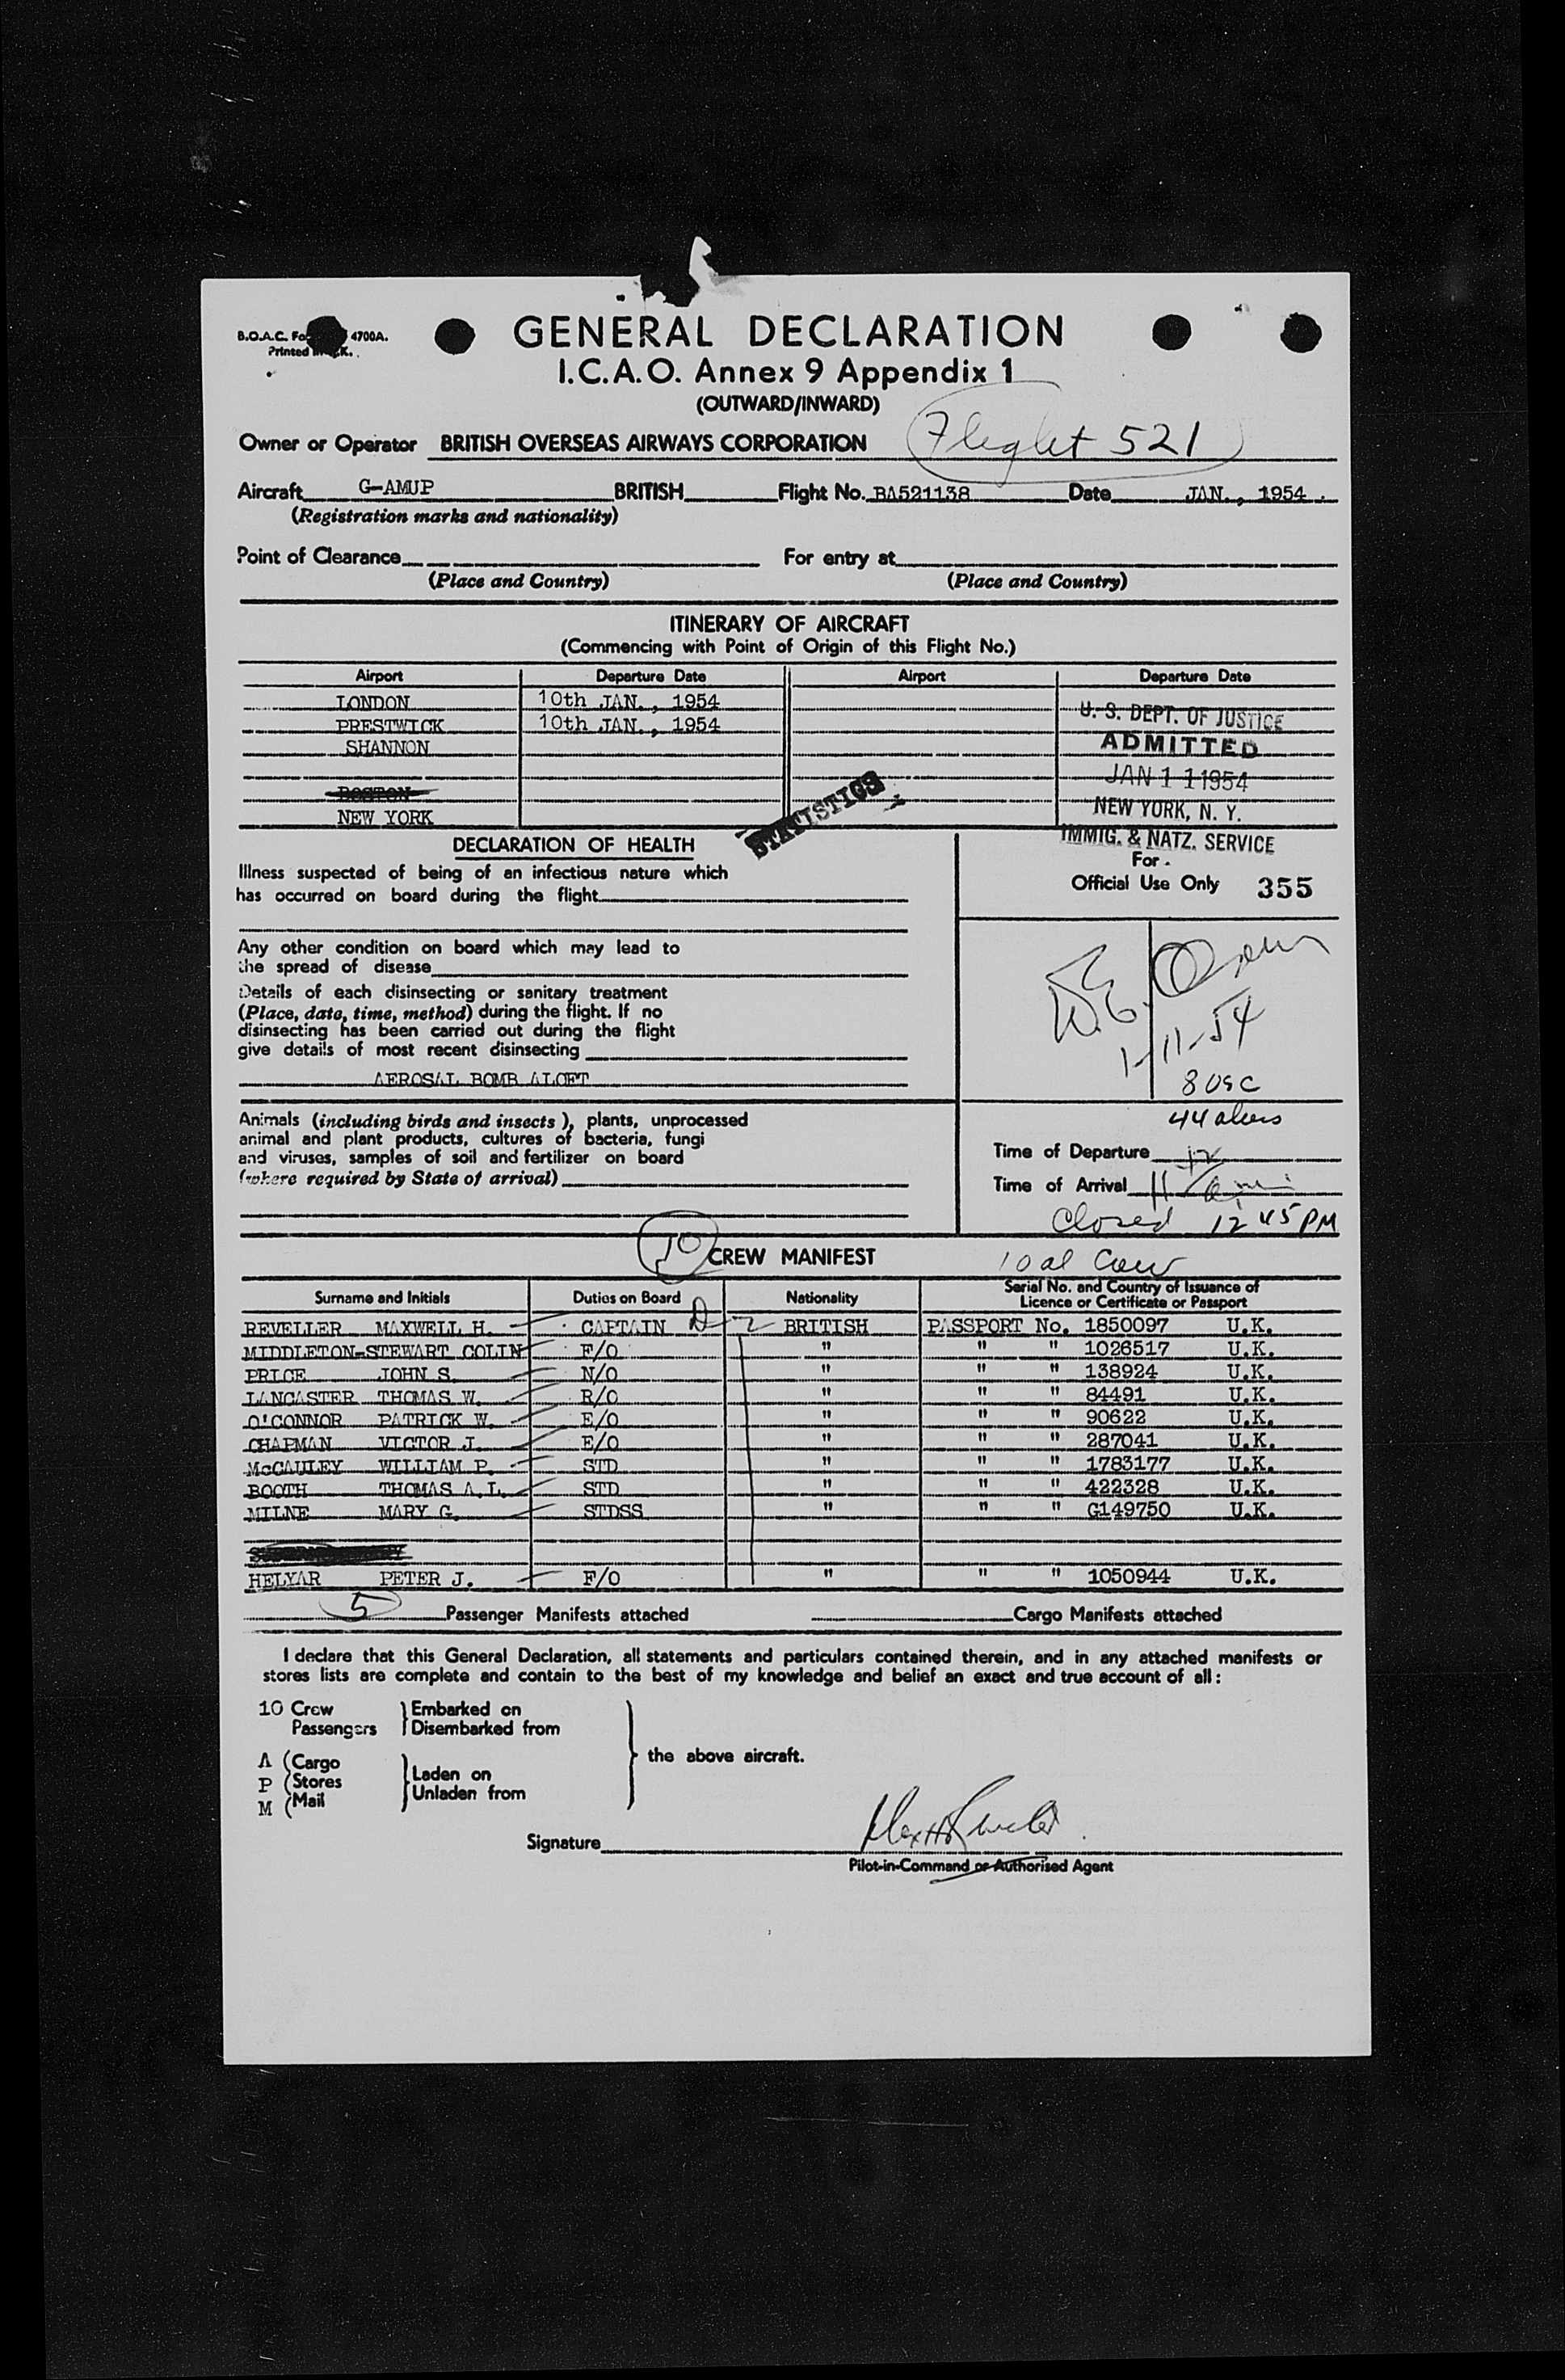 B.O.A.C. 4700A.
Printed
GENERAL DECLARATION
I.C.A.O. Annex 9 Appendix 1
(OUTWARD/INWARD)
Owner or Operator BRITISH OVERSEAS AIRWAYS CORPORATION Flight 521
Aircraft G-AMUP BRITISH Flight No. BA521138 Date JAN., 1954.
(Registration marks and nationality)
Point of Clearance For entry at
(Place and Country) (Place and Country)
ITINERARY OF AIRCRAFT
(Commencing with Point of Origin of this Flight No.)
Airport Departure Date Airport Departure Date
LONDON 10th JAN., 1954
PRESTWICK 10th JAN., 1954 U. S. DEPT. OF JUSTICE
SHANNON ADMITTED
JAN 11 1954
BOSTON
NEW YORK NEW YORK, N. Y.
STATISTICS
DECLARATION OF HEALTH IMMIG. & NATZ. SERVICE
Illness suspected of being of an infectious nature which For
has occurred on board during the flight Official Use Only 355
Any other condition on board which may lead to
the spread of disease
Details of each disinsecting or sanitary treatment
(Place, date, time, method) during the flight. If no
disinsecting has been carried out during the flight
give details of most recent disinsecting 1-11-54
AEROSAL BOMB ALOFT 8 USC
Animals (including birds and insects), plants, unprocessed 44 aliens
animal and plant products, cultures of bacteria, fungi
and viruses, samples of soil and fertilizer on board Time of Departure
(where required by State of arrival) Time of Arrival 11
Closed 12 45 PM
10 CREW MANIFEST 10 al Crew
Surname and Initials Duties on Board Nationality Serial No. and Country of Issuance of
Licence or Certificate or Passport
REVELLER MAXWELL H. CAPTAIN D-2 BRITISH PASSPORT No. 1850097 U.K.
MIDDLETON-STEWART COLIN F/O " " " 1026517 U.K.
PRICE JOHN S. N/O " " " 138924 U.K.
LANCASTER THOMAS W. R/O " " " 84491 U.K.
O'CONNOR PATRICK W. E/O " " " 90622 U.K.
CHAPMAN VICTOR J. E/O " " " 287041 U.K.
McCAULEY WILLIAM P. STD " " " 1783177 U.K.
BOOTH THOMAS A.L. STD " " " 422328 U.K.
MILNE MARY G. STDSS " " " G149750 U.K.
HELYAR PETER J. F/O " " " 1050944 U.K.
5 Passenger Manifests attached Cargo Manifests attached
I declare that this General Declaration, all statements and particulars contained therein, and in any attached manifests or
stores lists are complete and contain to the best of my knowledge and belief an exact and true account of all:
10 Crew Embarked on
Passengers Disembarked from
the above aircraft.
A (Cargo
P (Stores Laden on
M (Mail Unladen from
Signature
Pilot-in-Command or Authorised Agent